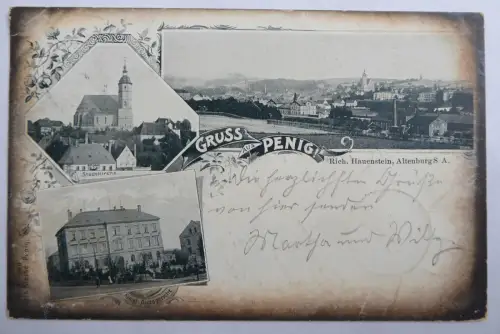 Stadtkirche
GRUSS
AUS
PENIG!
Rich. Hauenstein, Altenburg S. A.
Die herzlichsten Grüße
von hier senden
Martha und Willy